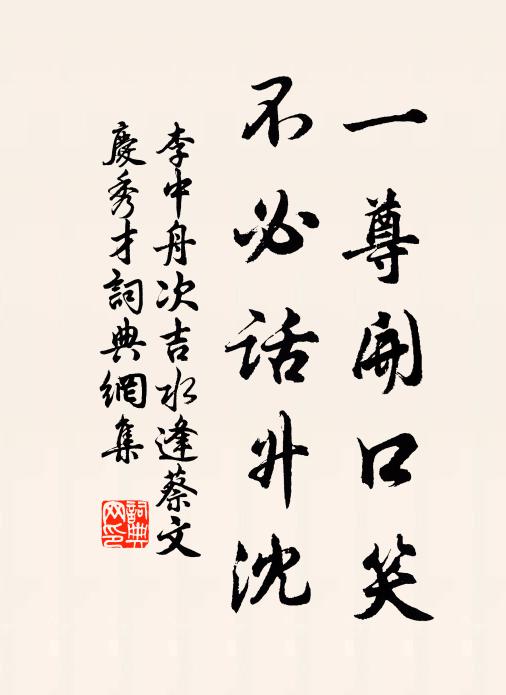 一尊開口笑
不必話升沈
李中舟次吉水逢蔡文
慶秀才詞典網集
詞典网印